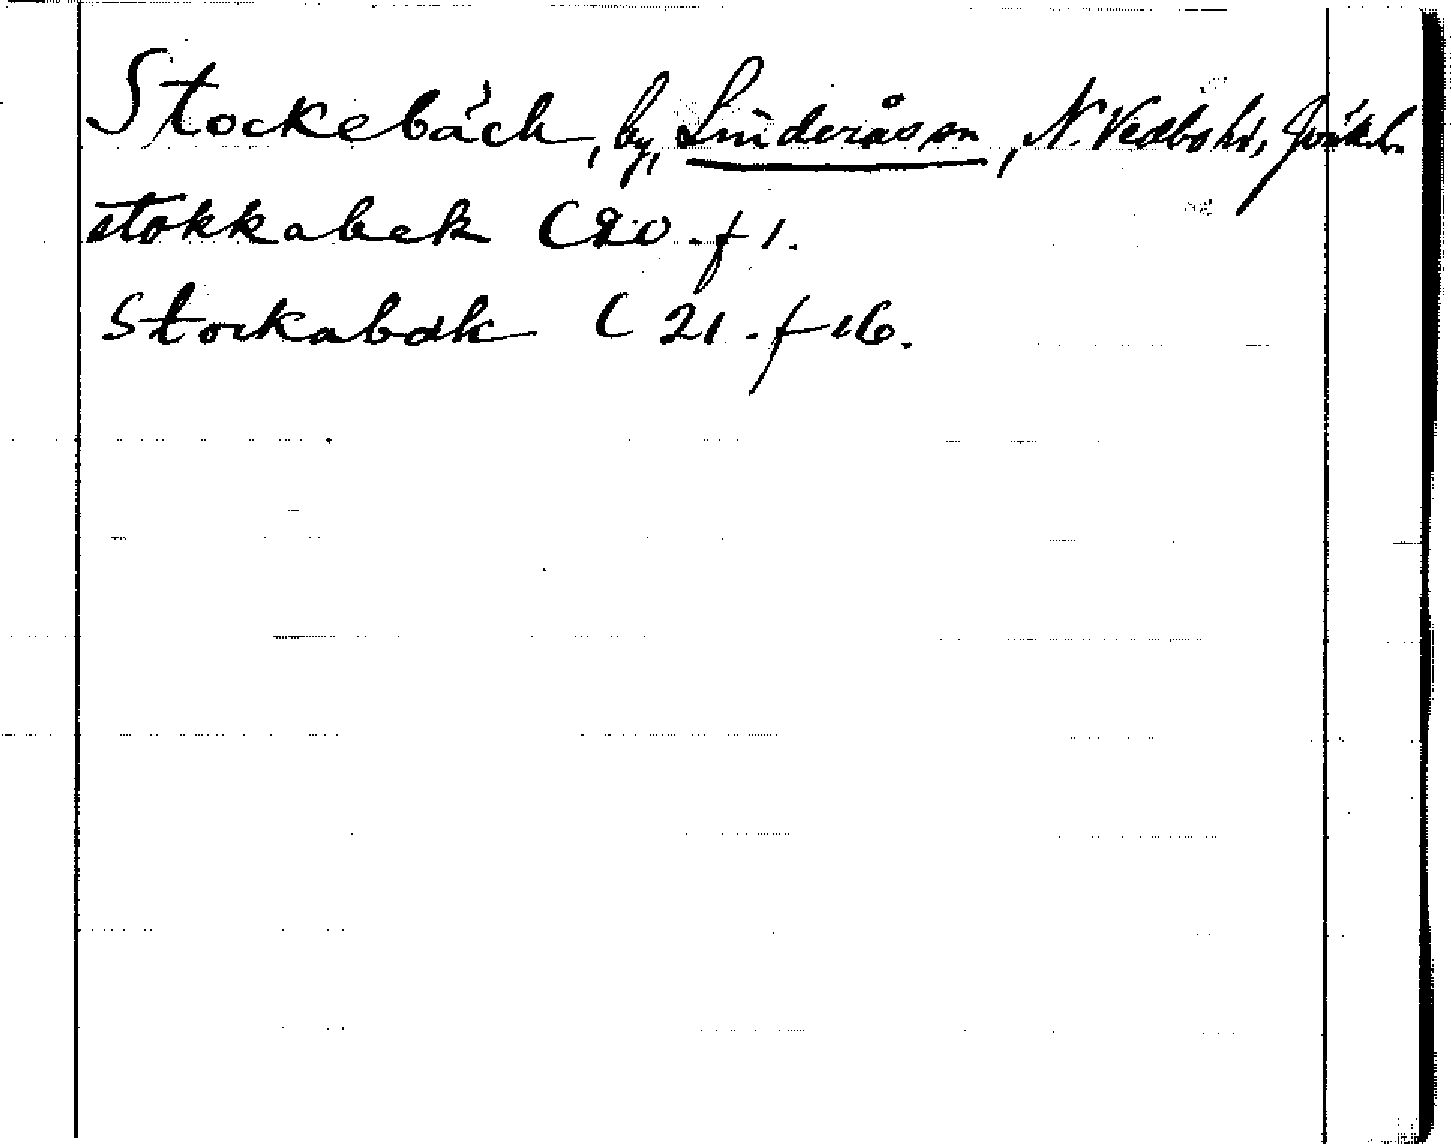 Stockebäck, by, Linderås sn, N. Vedbo hd, Jönk. l.
stokkabek C 20 . f 1.
Stockabäk C 21 . f 16.